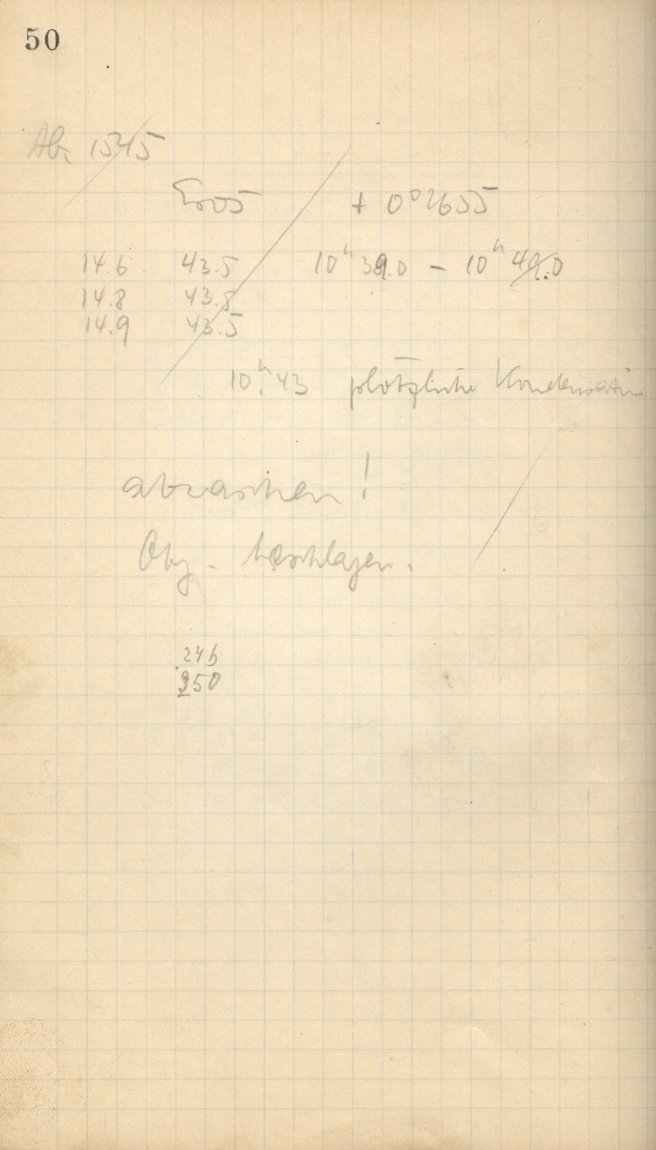 50
1545
Eros + 0°2655
14.6 43.5 10ʰ39.0 – 10ʰ49.0
14.8 43.8
14.9 43.5
10ʰ.43 plötzliche Kondensation
abwaschen!
Obj. beschlagen.
246
250